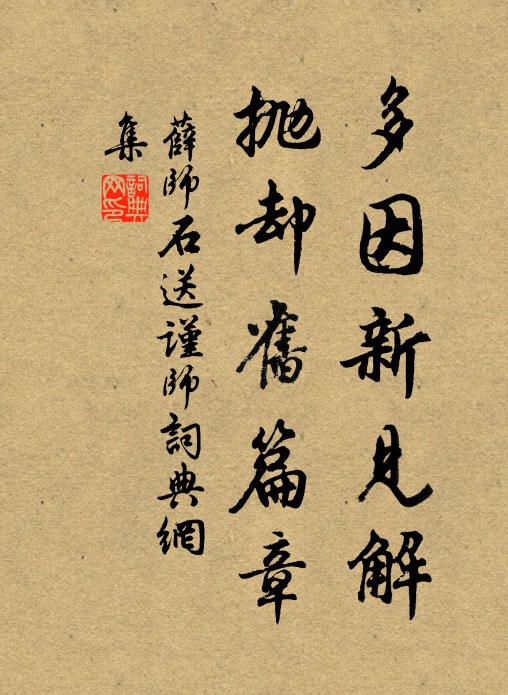 多因新見解
抛却舊篇章
薛師石送謹師詞典網
集
詞典網印